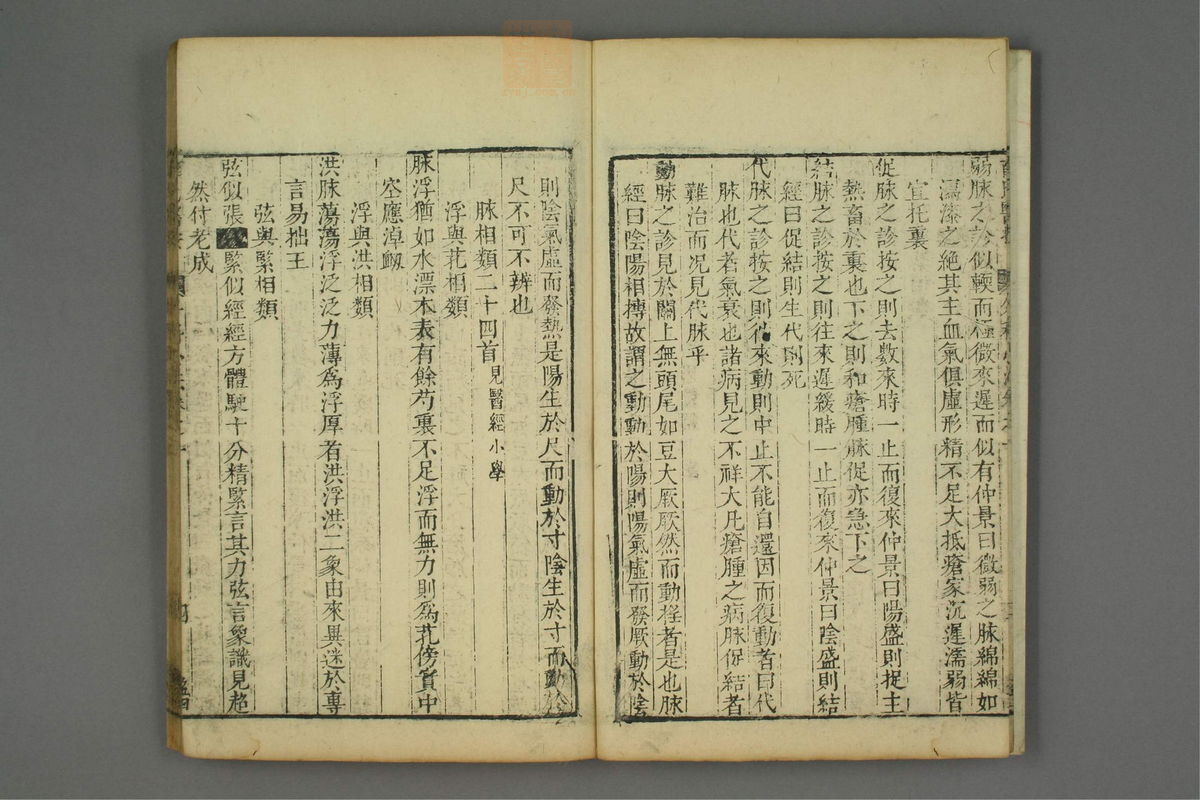 弱脉之診似軟而極微來遲而似有仲景曰微弱之脉綿綿如
瀉漆之絕其主血氣俱虛形精不足大抵瘡家沉遲濡弱皆
宜托裏
促脉之診按之則去數來時一止而復來仲景曰陽盛則促主
熱畜於裏也下之則和瘡腫脉促亦急下之
結脉之診按之則往來遲緩時一止而復來仲景曰陰盛則結
經曰促結則生代則死
代脉之診按之則往來動則中止不能自還因而復動者曰代
脉也代者氣衰也諸病見之不祥大凡瘡腫之病脉促結者
難治而况見代脉乎
動脉之診見於關上無頭尾如豆大厥厥然而動揺者是也脉
經曰陰陽相搏故謂之動動於陽則陽氣虛而發厥動於陰
則陰氣虛而發熱是陽生於尺而動於寸陰生於寸而動於
尺不可不辨也
脉相類二十四首見醫經小學
浮與芤相類
脉浮猶如水漂木表有餘芍裏不足浮而無力則爲芤傍實中
空應淖
浮與洪相類
洪脉蕩蕩浮泛泛力薄爲浮厚者洪浮洪二象由來異迷於專
言易拙王
弦與緊相類
弦似張緊似經經方體駛十分精緊言其力弦言象識見超
然付老成